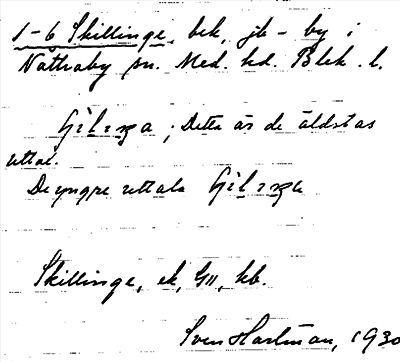 1-6 Skillinge, bek, jb - by i
Nättraby sn. Med. hd. Blek. l.
Detta är de äldstas
uttal.
De yngre uttala
Skillinge, ek, GII, kb.
Sven Hartman, 1930